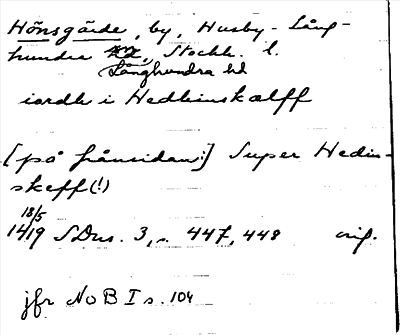 Hönsgärde, by, Husby-Lång-
hundra sn., Stockh. l.
Långhundra hd
iordh i Hedhinskælff
[på frånsidan:] Super Hedin-
skeff(!)
18/5
1419 SDns. 3, s. 447, 448 orig.
jfr NoB I s. 104